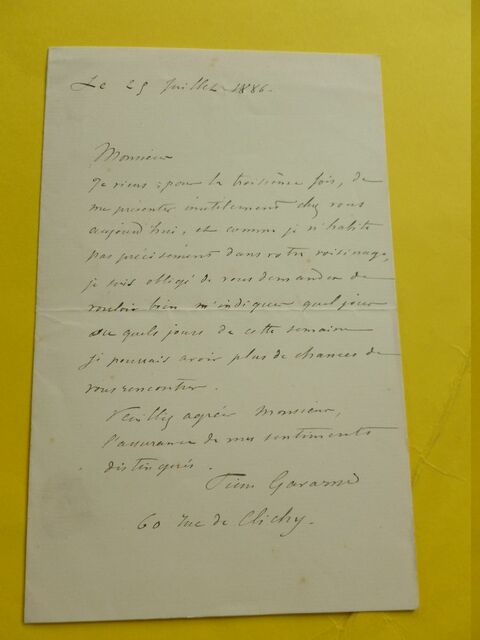 Le 25 Juillet 1886.
Monsieur
Je viens, pour la troisième fois, de
me presenter inutilement chez vous
aujourd'hui, et comme je n'habite
pas précisément dans votre voisinage,
je suis obligé de vous demander de
vouloir bien m'indiquer quel jour
ou quels jours de cette semaine
je pourrais avoir plus de chances de
vous rencontrer.
Veuillez agréer Monsieur,
l'assurance de mes sentiments
distingués.
Pierre Gavarni
60 rue de Clichy.